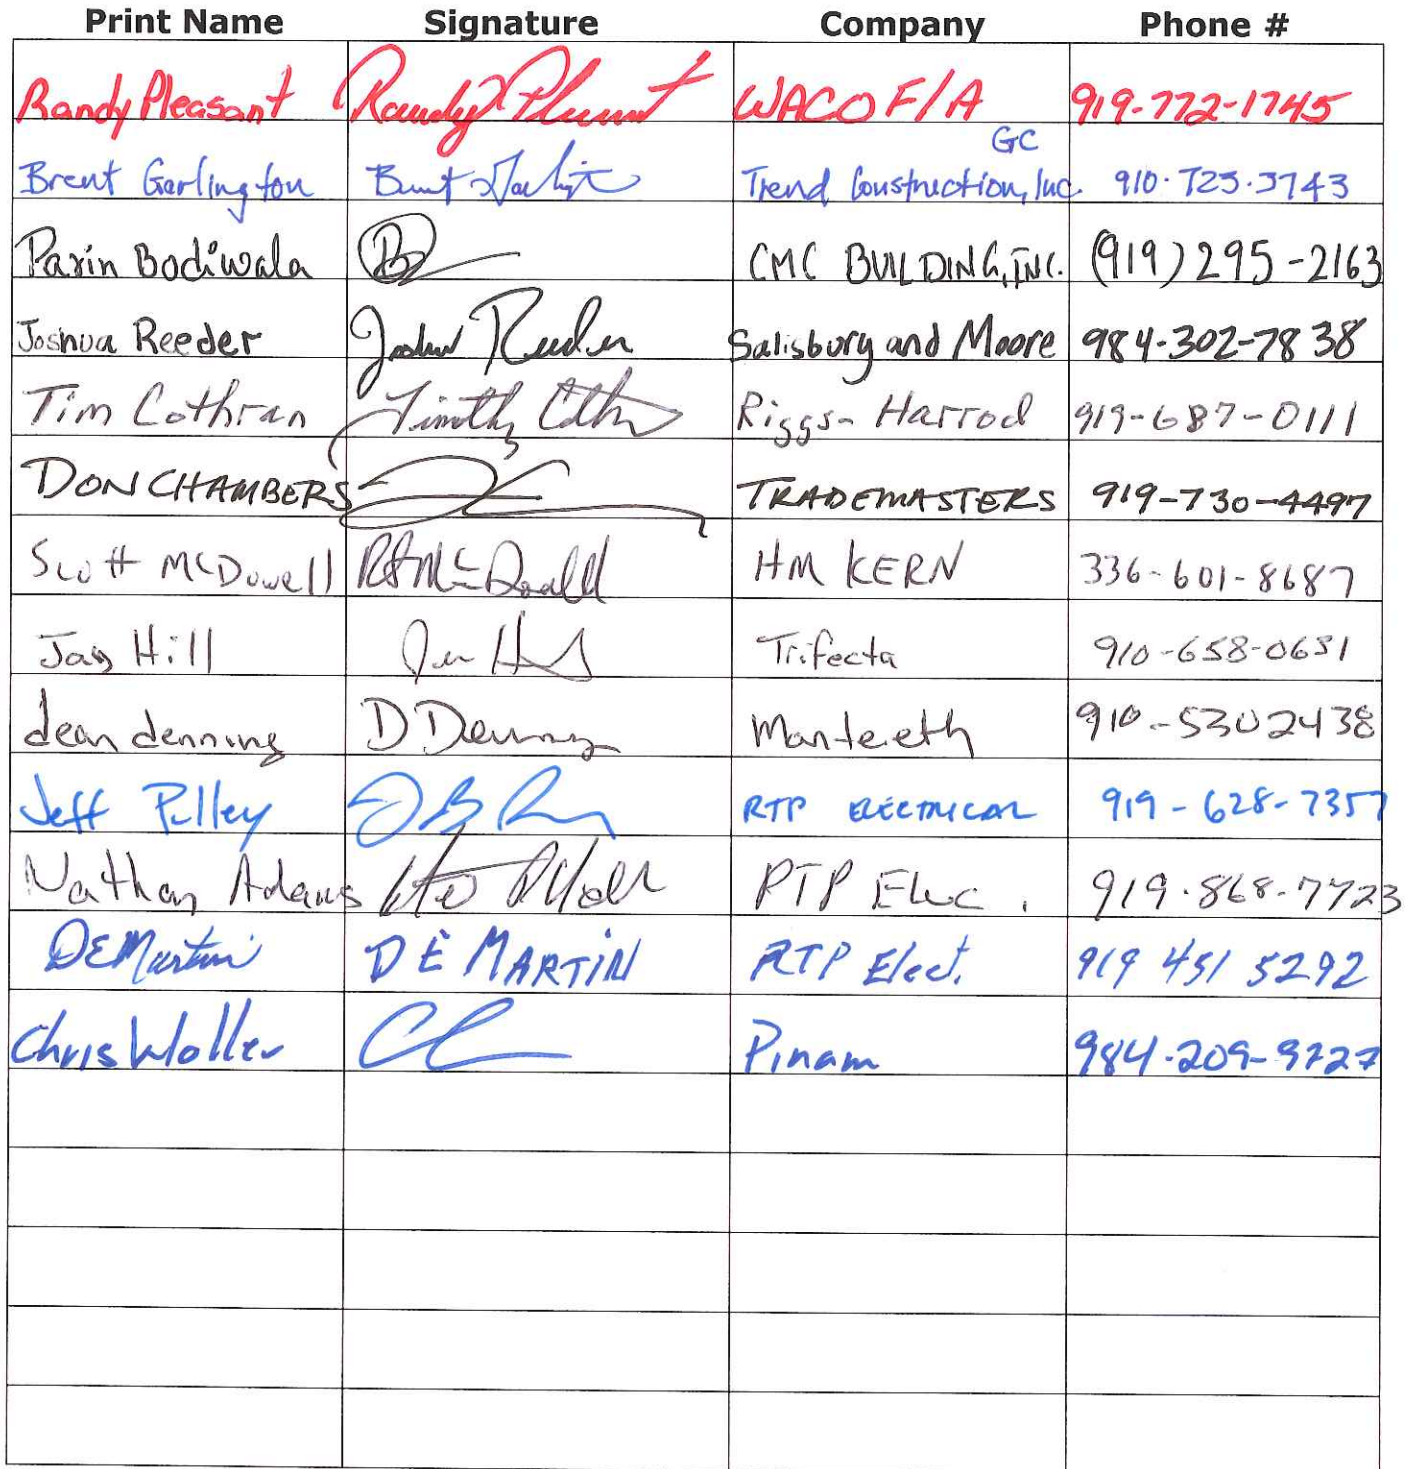 Print Name Signature Company Phone #
Randy Pleasant Randy Pleasant WACO F/A 919-772-1745
GC
Brent Garlington Trend Construction, Inc. 910-723-3743
Parin Bodiwala CMC BUILDING, INC. (919) 295-2163
Joshua Reeder Joshua Reeder Salisbury and Moore 984-302-7838
Tim Cothran Timothy Riggs-Harrod 919-687-0111
DON CHAMBERS TRADEMASTERS 919-730-4497
Scott McDowell HM KERN 336-601-8687
Jay Hill Trifecta 910-658-0651
dean denning D Denning Manteeth 910-5302438
Jeff Pilley RTP ELECTRICAL 919-628-7357
Nathan Adams RTP Elec. 919-868-7723
DEMartin DE MARTIN RTP Elect. 919 451 5292
Chris Woller Pinam 984-209-9727